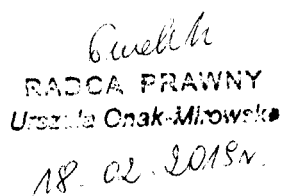 RADCA PRAWNY
Urszula Onak-Mirowska
18. 02. 2019r.